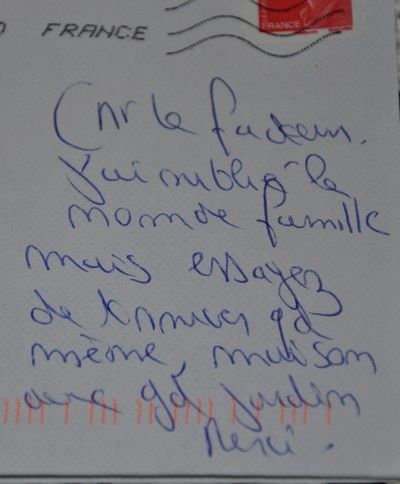 FRANCE
FRANCE
(Mr le facteur.
J'ai oublié le
nom de famille
mais essayez
de trouver qd
même, maison
avec gd jardin
Merci.